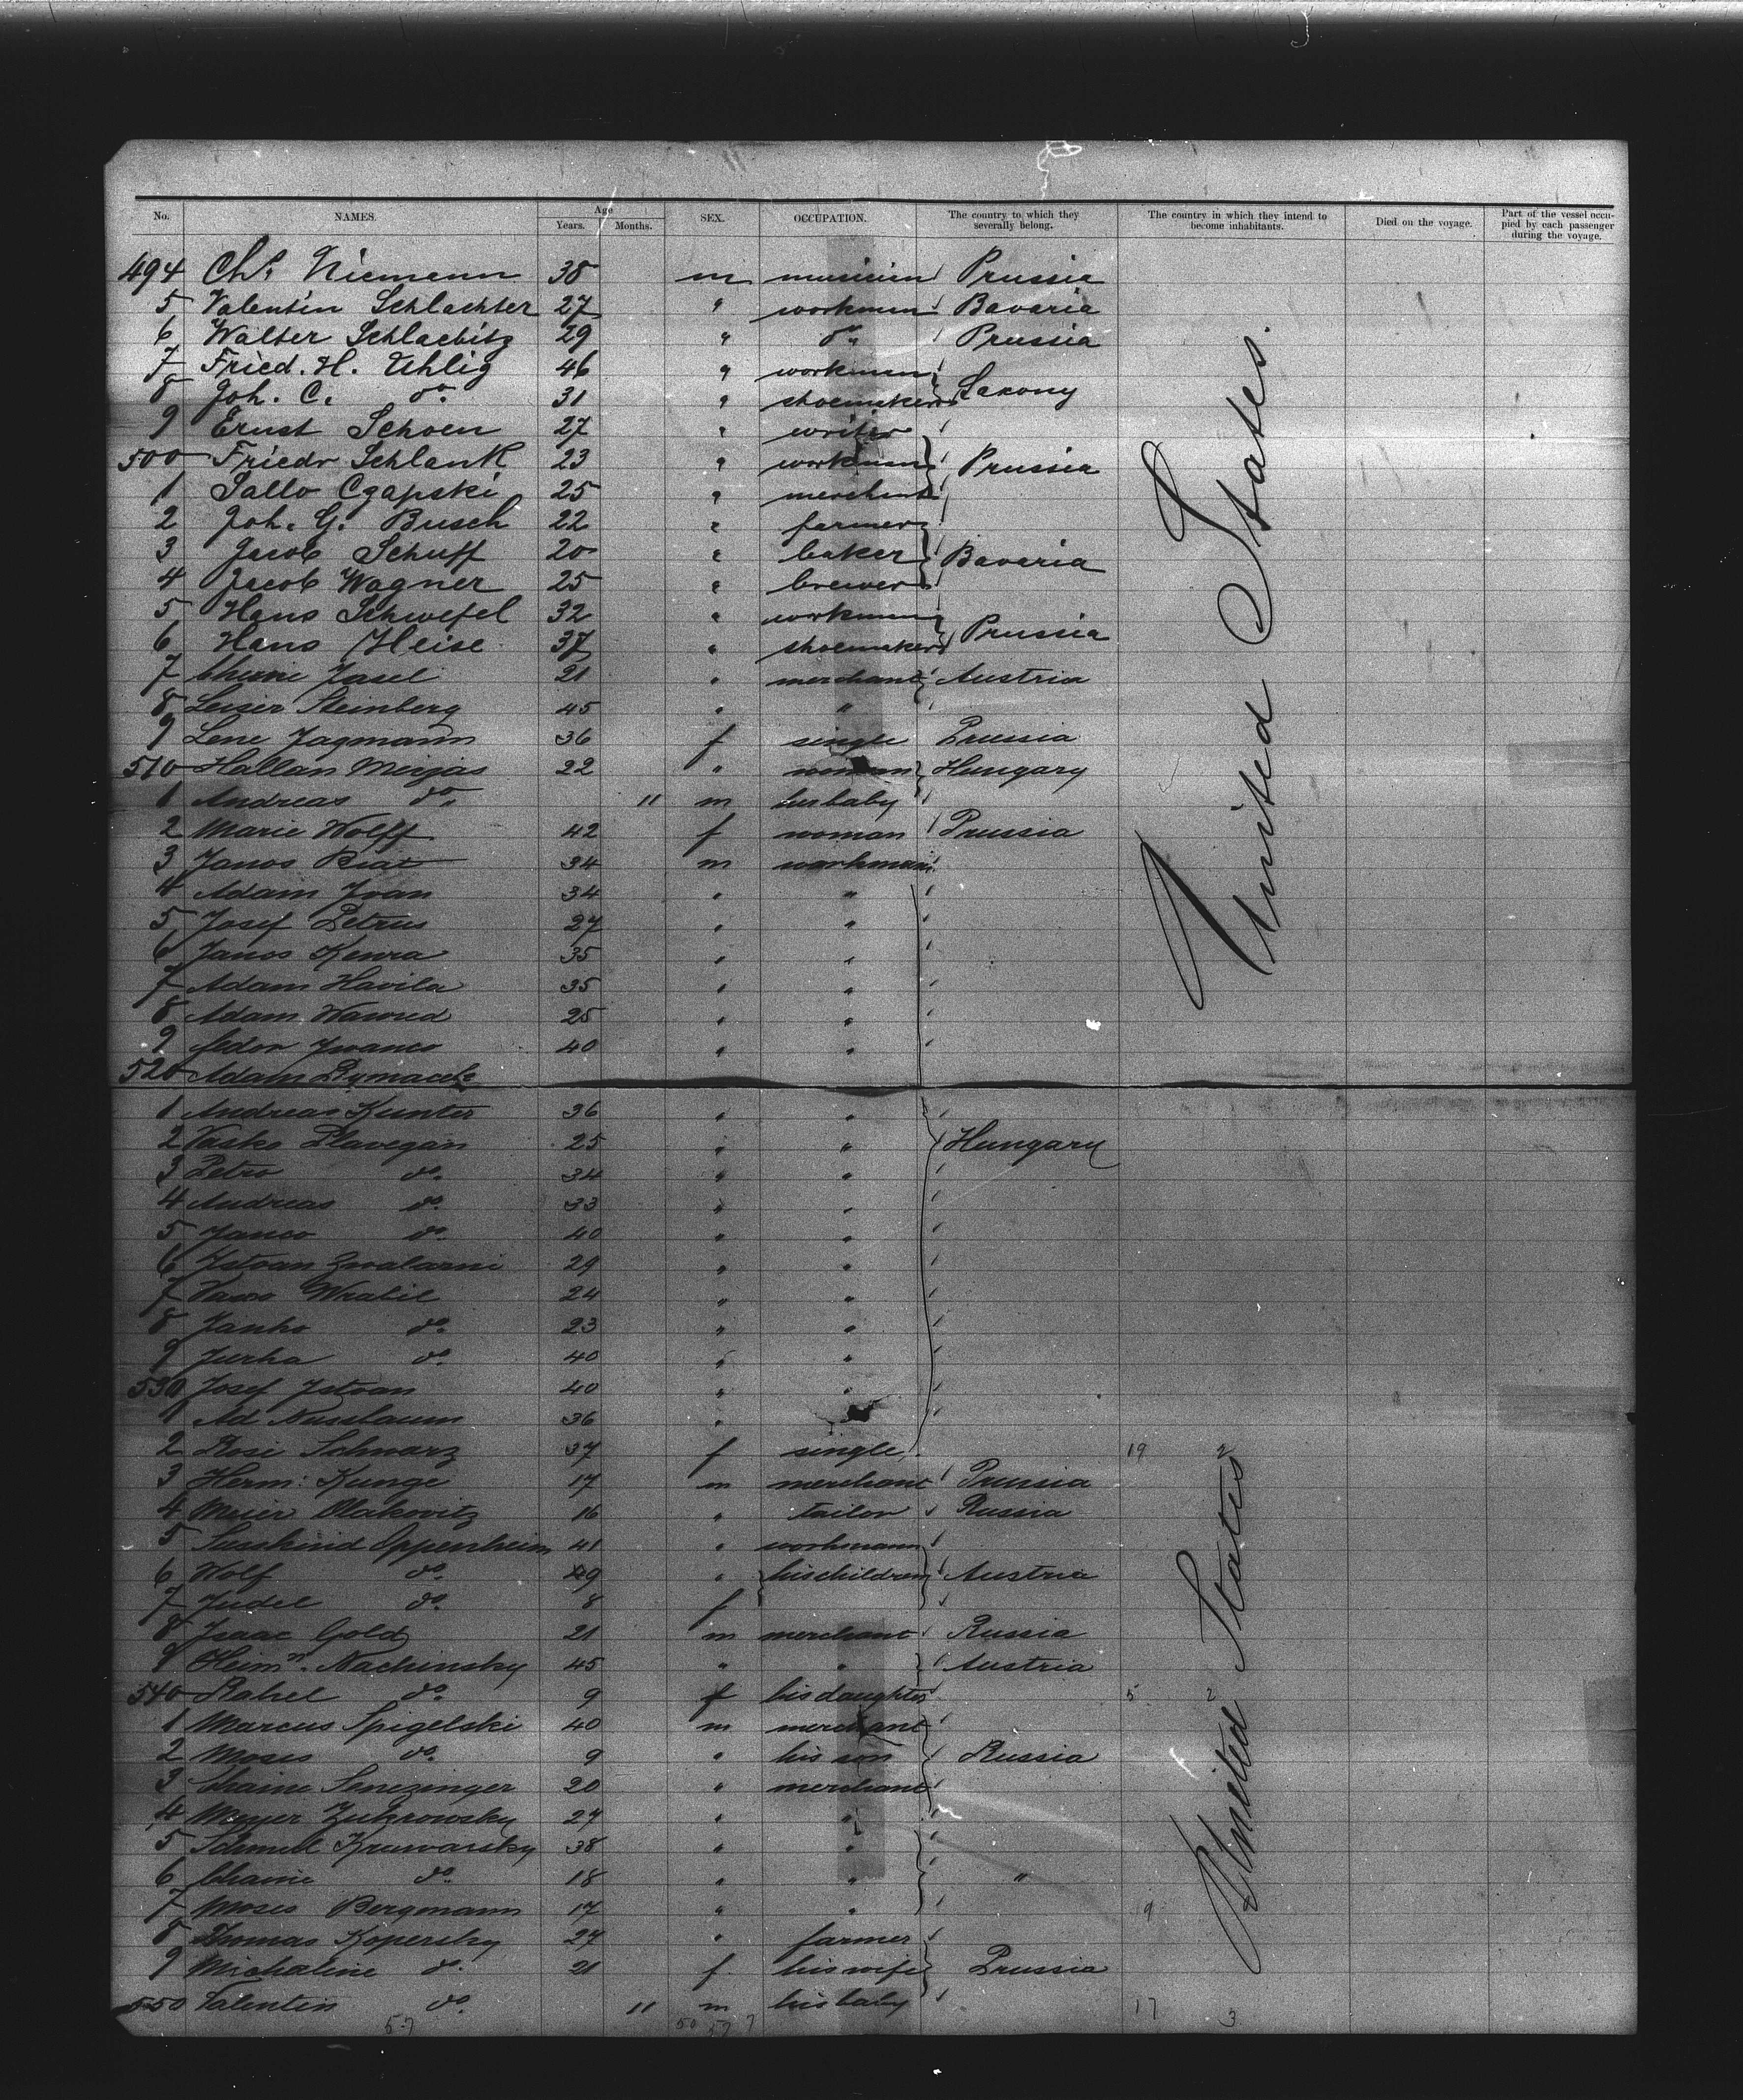 No. NAMES. Age Years. Months. SEX. OCCUPATION. The country to which they severally belong. The country in which they intend to become inhabitants. Died on the voyage. Part of the vessel occupied by each passenger during the voyage.
494 Chs. Niemann 38 m musician Prussia
5 Valentin Schlachter 27 " workman Bavaria
6 Walter Schlaebitz 29 " do. Prussia
7 Fried. H. Uhlig 46 " workman
8 Joh. C. do. 31 " shoemaker Saxony
9 Ernst Schoen 27 " writer
500 Friedr Schlank 23 " workman Prussia
1 Sallo Czapski 25 " merchant
2 Joh. G. Busch 22 " farmer
3 Jacob Schuff 20 " baker Bavaria
4 Jacob Wagner 25 " brewer
5 Hans Schwefel 32 " workman
6 Hans Heise 37 " shoemaker Prussia
7 Jasel 21 " merchant Austria
8 Leiser Steinberg 45 " "
9 Lene Jagmann 36 f single Prussia
510 Hallan 22 " woman Hungary
1 Andreas do. 11 m her baby
2 Marie Wolff 42 f woman Prussia
3 Janos 34 m workman
4 Adam Ivan 34 " "
5 Josef Petrus 27 " "
6 Janos 35 " "
7 Adam Havila 35 " "
8 Adam 25 " "
9 Fedor Iwanco 40 " "
520 Adam
1 Andreas Kunter 36 " "
2 Vasko Plavegan 25 " " Hungary
3 Petro do. 34 " "
4 Andreas do. 33 " "
5 Janco do. 40 " "
6 Istvan 29 " "
7 Wrabil 24 " "
8 Janko do. 23 " "
9 Jurka do. 40 " "
530 Josef Istvan 40 " "
1 Ad Nussbaum 36 "
2 Rosi Schwarz 37 f single 19 2
3 Herm: Kunge 17 m merchant Prussia
4 Meier Olakovitz 16 " tailor Russia
5 Susskind Oppenheim 41 " workmann
6 Wolf do. 9 " his children Austria
7 Judel do. 8 f
8 Isaac Gold 21 m merchant Russia
9 Heimn. Nachinsky 45 " " Austria
540 Rahel do. 9 f his daughter 5 2
1 Marcus Spigelski 40 m merchant
2 Moses do. 9 " his son Russia
3 Chaim 20 " merchant
4 Meyer 27 " "
5 Schmul Kruwarsky 38 " "
6 do. 18 " " "
7 Moses Bergmann 17 " " 9
8 Thomas Kopersky 27 " farmer
9 Michaline do. 21 f his wife Prussia
550 Valentin do. 11 m his baby 17 3
57 50 57 7
United States.
United States